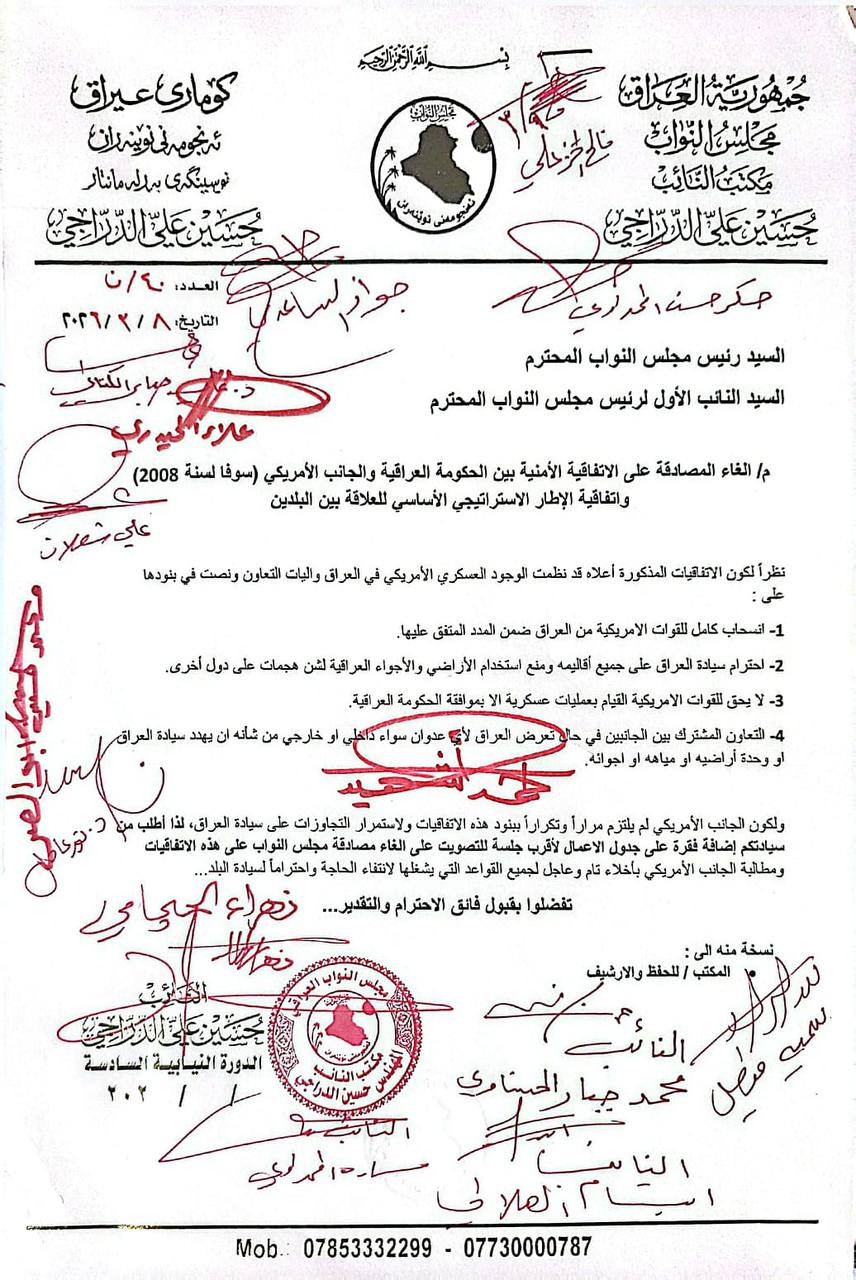 بسم الله الرحمن الرحيم
جمهورية العراق
مجلس النواب
مكتب النائب
حسين علي الدراجي
كوماری عیراق
ئەنجومەنی نوینەران
نوسینگەی بەرلەمانتار
حسين علي الدراجي
مجلس النواب
ئەنجومەنی نوێنەران
فالح الخزعلي
العدد: ٤٠/ن
التاريخ: ٢٠٢٦/٣/٨
جواد الساعدي
علاء الحيدري
علي شعلان
السيد رئيس مجلس النواب المحترم
السيد النائب الأول لرئيس مجلس النواب المحترم
م/ الغاء المصادقة على الاتفاقية الأمنية بين الحكومة العراقية والجانب الأمريكي (سوفا لسنة 2008)
واتفاقية الإطار الاستراتيجي الأساسي للعلاقة بين البلدين
نظراً لكون الاتفاقيات المذكورة أعلاه قد نظمت الوجود العسكري الأمريكي في العراق واليات التعاون ونصت في بنودها
على :
1- انسحاب كامل للقوات الامريكية من العراق ضمن المدد المتفق عليها.
2- احترام سيادة العراق على جميع أقاليمه ومنع استخدام الأراضي والأجواء العراقية لشن هجمات على دول أخرى.
3- لا يحق للقوات الامريكية القيام بعمليات عسكرية الا بموافقة الحكومة العراقية.
4- التعاون المشترك بين الجانبين في حال تعرض العراق لأي عدوان سواء داخلي او خارجي من شأنه ان يهدد سيادة العراق
او وحدة أراضيه او مياهه او اجوائه.
ولكون الجانب الأمريكي لم يلتزم مراراً وتكراراً ببنود هذه الاتفاقيات ولاستمرار التجاوزات على سيادة العراق، لذا أطلب من
سيادتكم إضافة فقرة على جدول الاعمال لأقرب جلسة للتصويت على الغاء مصادقة مجلس النواب على هذه الاتفاقيات
ومطالبة الجانب الأمريكي بأخلاء تام وعاجل لجميع القواعد التي يشغلها لانتفاء الحاجة واحتراماً لسيادة البلد...
تفضلوا بقبول فائق الاحترام والتقدير...
زهراء
نسخة منه الى :
• المكتب / للحفظ والارشيف
النائب
حسين علي الدراجي
الدورة النيابية السادسة
/ / ٢٠٢
مجلس النواب العراقي
مكتب النائب
المهندس حسين الدراجي
النائب
محمد جبار الحسناوي
سمية فيصل
النائب
Mob.: 07853332299 - 07730000787